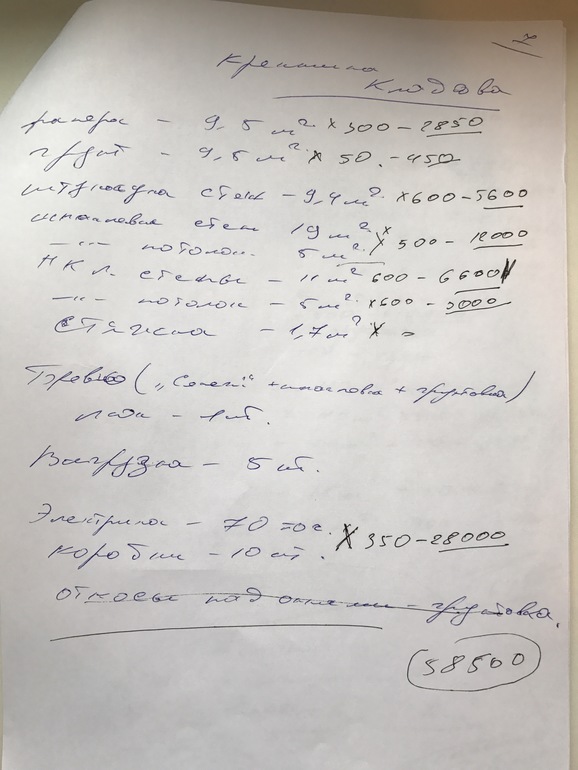 Крепышка
Кладова
размерос - 9,5 м² × 300 - 2850
грунт - 9,5 м² × 50. - 450
штукатурка стен - 9,4 м² × 600 - 5600
шпаклевка стен 19 м²
-"- потолок. 5 м² × 500 - 12000
Н К Л. стены - 11 м² 600 - 6600
-"- потолок - 5 м² × 600 - 3000
Стяжка - 1,7 м² × =
(„ +шпаклевка + грунтовка)
люк - 1 шт.
Выгрузка - 5 шт.
Электрика - 70 точ.
коробки - 10 шт. × 350 - 28000
откосы над окнами - грунтовка.
58500